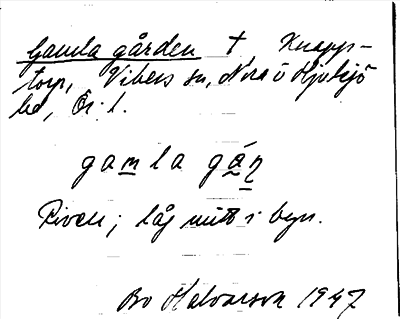 Gamla gården † Knapp-
torp, Vibers sn, Nora o Hjulsjö
bd, Ör. l.
gamla gáṇ
Riven; låg mitt i byn.
Bo Halvarson 1947